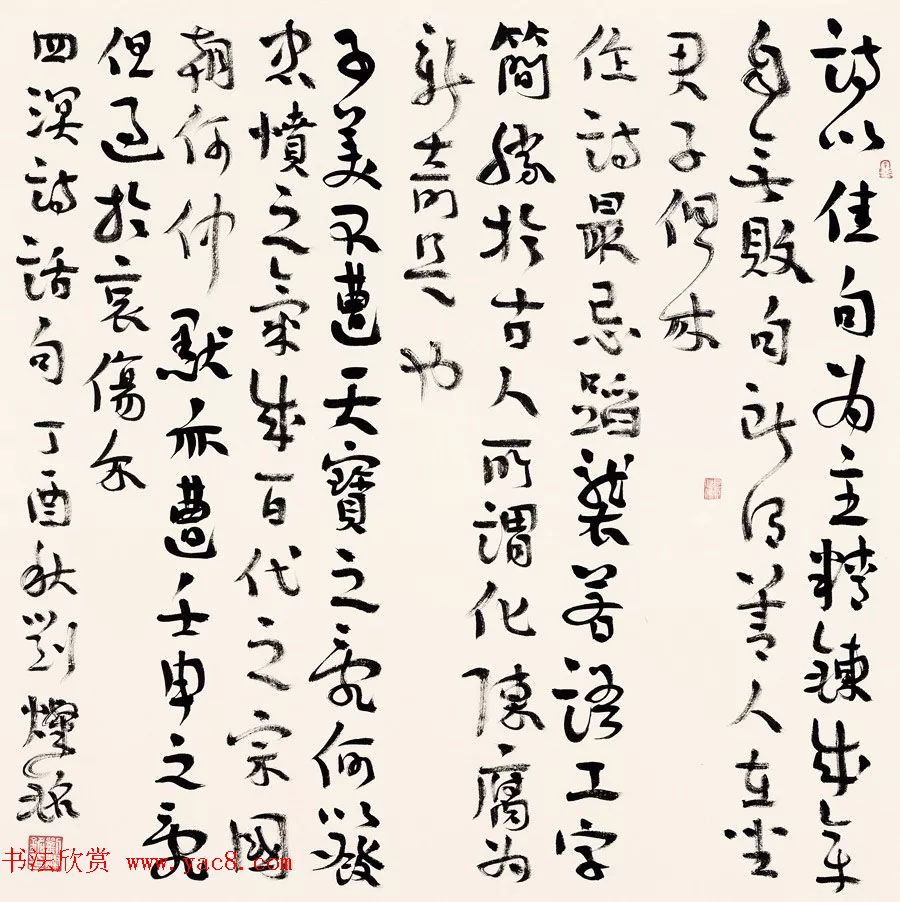 詩以佳句为主精鍊成章
自無敗句所謂善人在坐
君子俱来
作詩最忌蹈襲若語工字
簡勝於古人所謂化陳腐为
新奇是也
子美不遭天寶之亂何以發
忠憤之氣成百代之宗國
朝何仲默亦遭壬申之亂
但過於哀傷尔
四溟詩話句 丁酉秋劉燦銘
书法欣赏 www.yac8.com